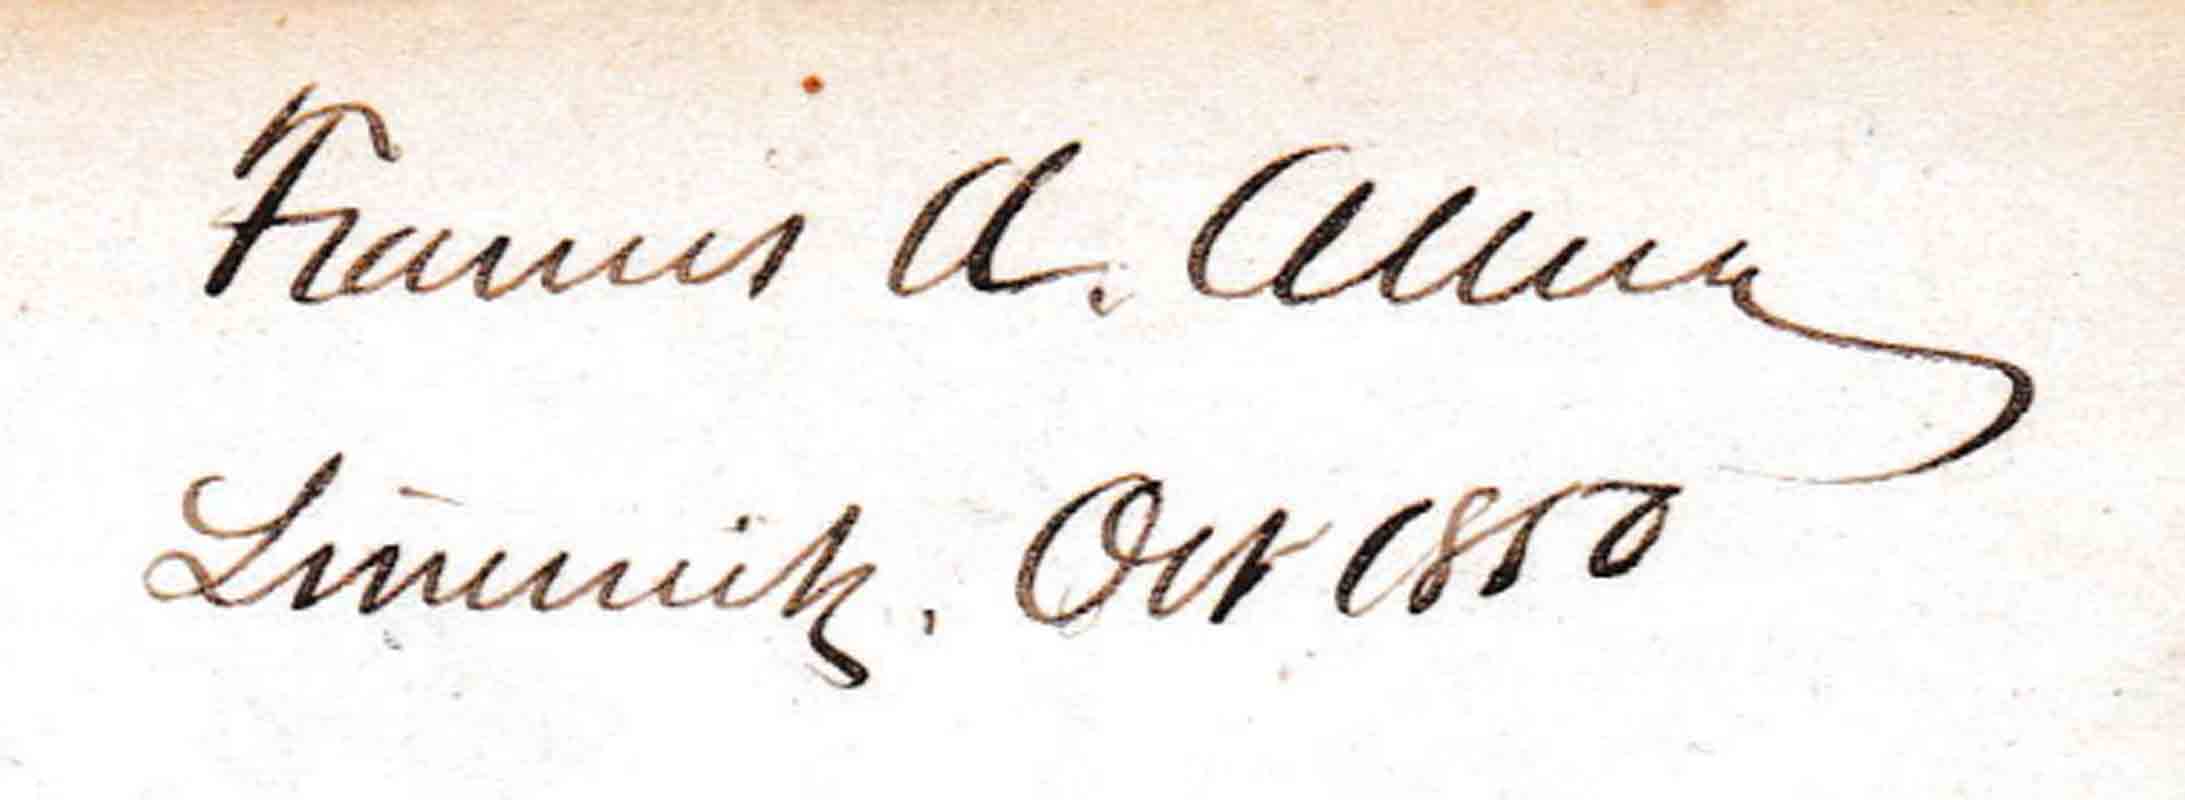 Francis A. Allen
Limerick. Oct 1850